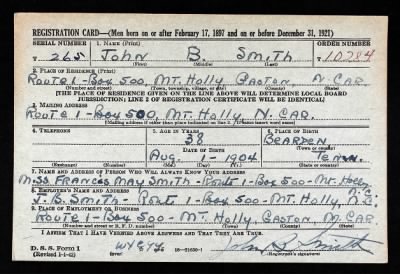 REGISTRATION CARD—(Men born on or after February 17, 1897 and on or before December 31, 1921)
SERIAL NUMBER 1. NAME (Print) ORDER NUMBER
T 265 John B. Smith 10784
(First) (Middle) (Last)
2. PLACE OF RESIDENCE (Print)
Route 1-Box 500, Mt. Holly, Gaston, N. Car.
(Number and street) (Town, township, village, or city) (County) (State)
[THE PLACE OF RESIDENCE GIVEN ON THE LINE ABOVE WILL DETERMINE LOCAL BOARD
JURISDICTION; LINE 2 OF REGISTRATION CERTIFICATE WILL BE IDENTICAL]
3. MAILING ADDRESS
Route 1-Box 500, Mt. Holly, N. Car.
[Mailing address if other than place indicated on line 2. If same insert word same]
4. TELEPHONE 5. AGE IN YEARS 6. PLACE OF BIRTH
38 Bearden
DATE OF BIRTH (Town or county)
Aug. 1-1904 Tenn.
(Exchange) (Number) (Mo.) (Day) (Yr.) (State or country)
7. NAME AND ADDRESS OF PERSON WHO WILL ALWAYS KNOW YOUR ADDRESS
Frances May Smith-Route 1-Box 500-Mt. Holly
8. EMPLOYER'S NAME AND ADDRESS
J. B. Smith - Route 1-Box 500-Mt. Holly, N.C.
9. PLACE OF EMPLOYMENT OR BUSINESS
Route 1-Box 500-Mt. Holly, Gaston, N. Car.
(Number and street or R. F. D. number) (Town) (County) (State)
I AFFIRM THAT I HAVE VERIFIED ABOVE ANSWERS AND THAT THEY ARE TRUE.
D. S. S. FORM 1
(Revised 1-1-42) 16-21630-1 John B. Smith